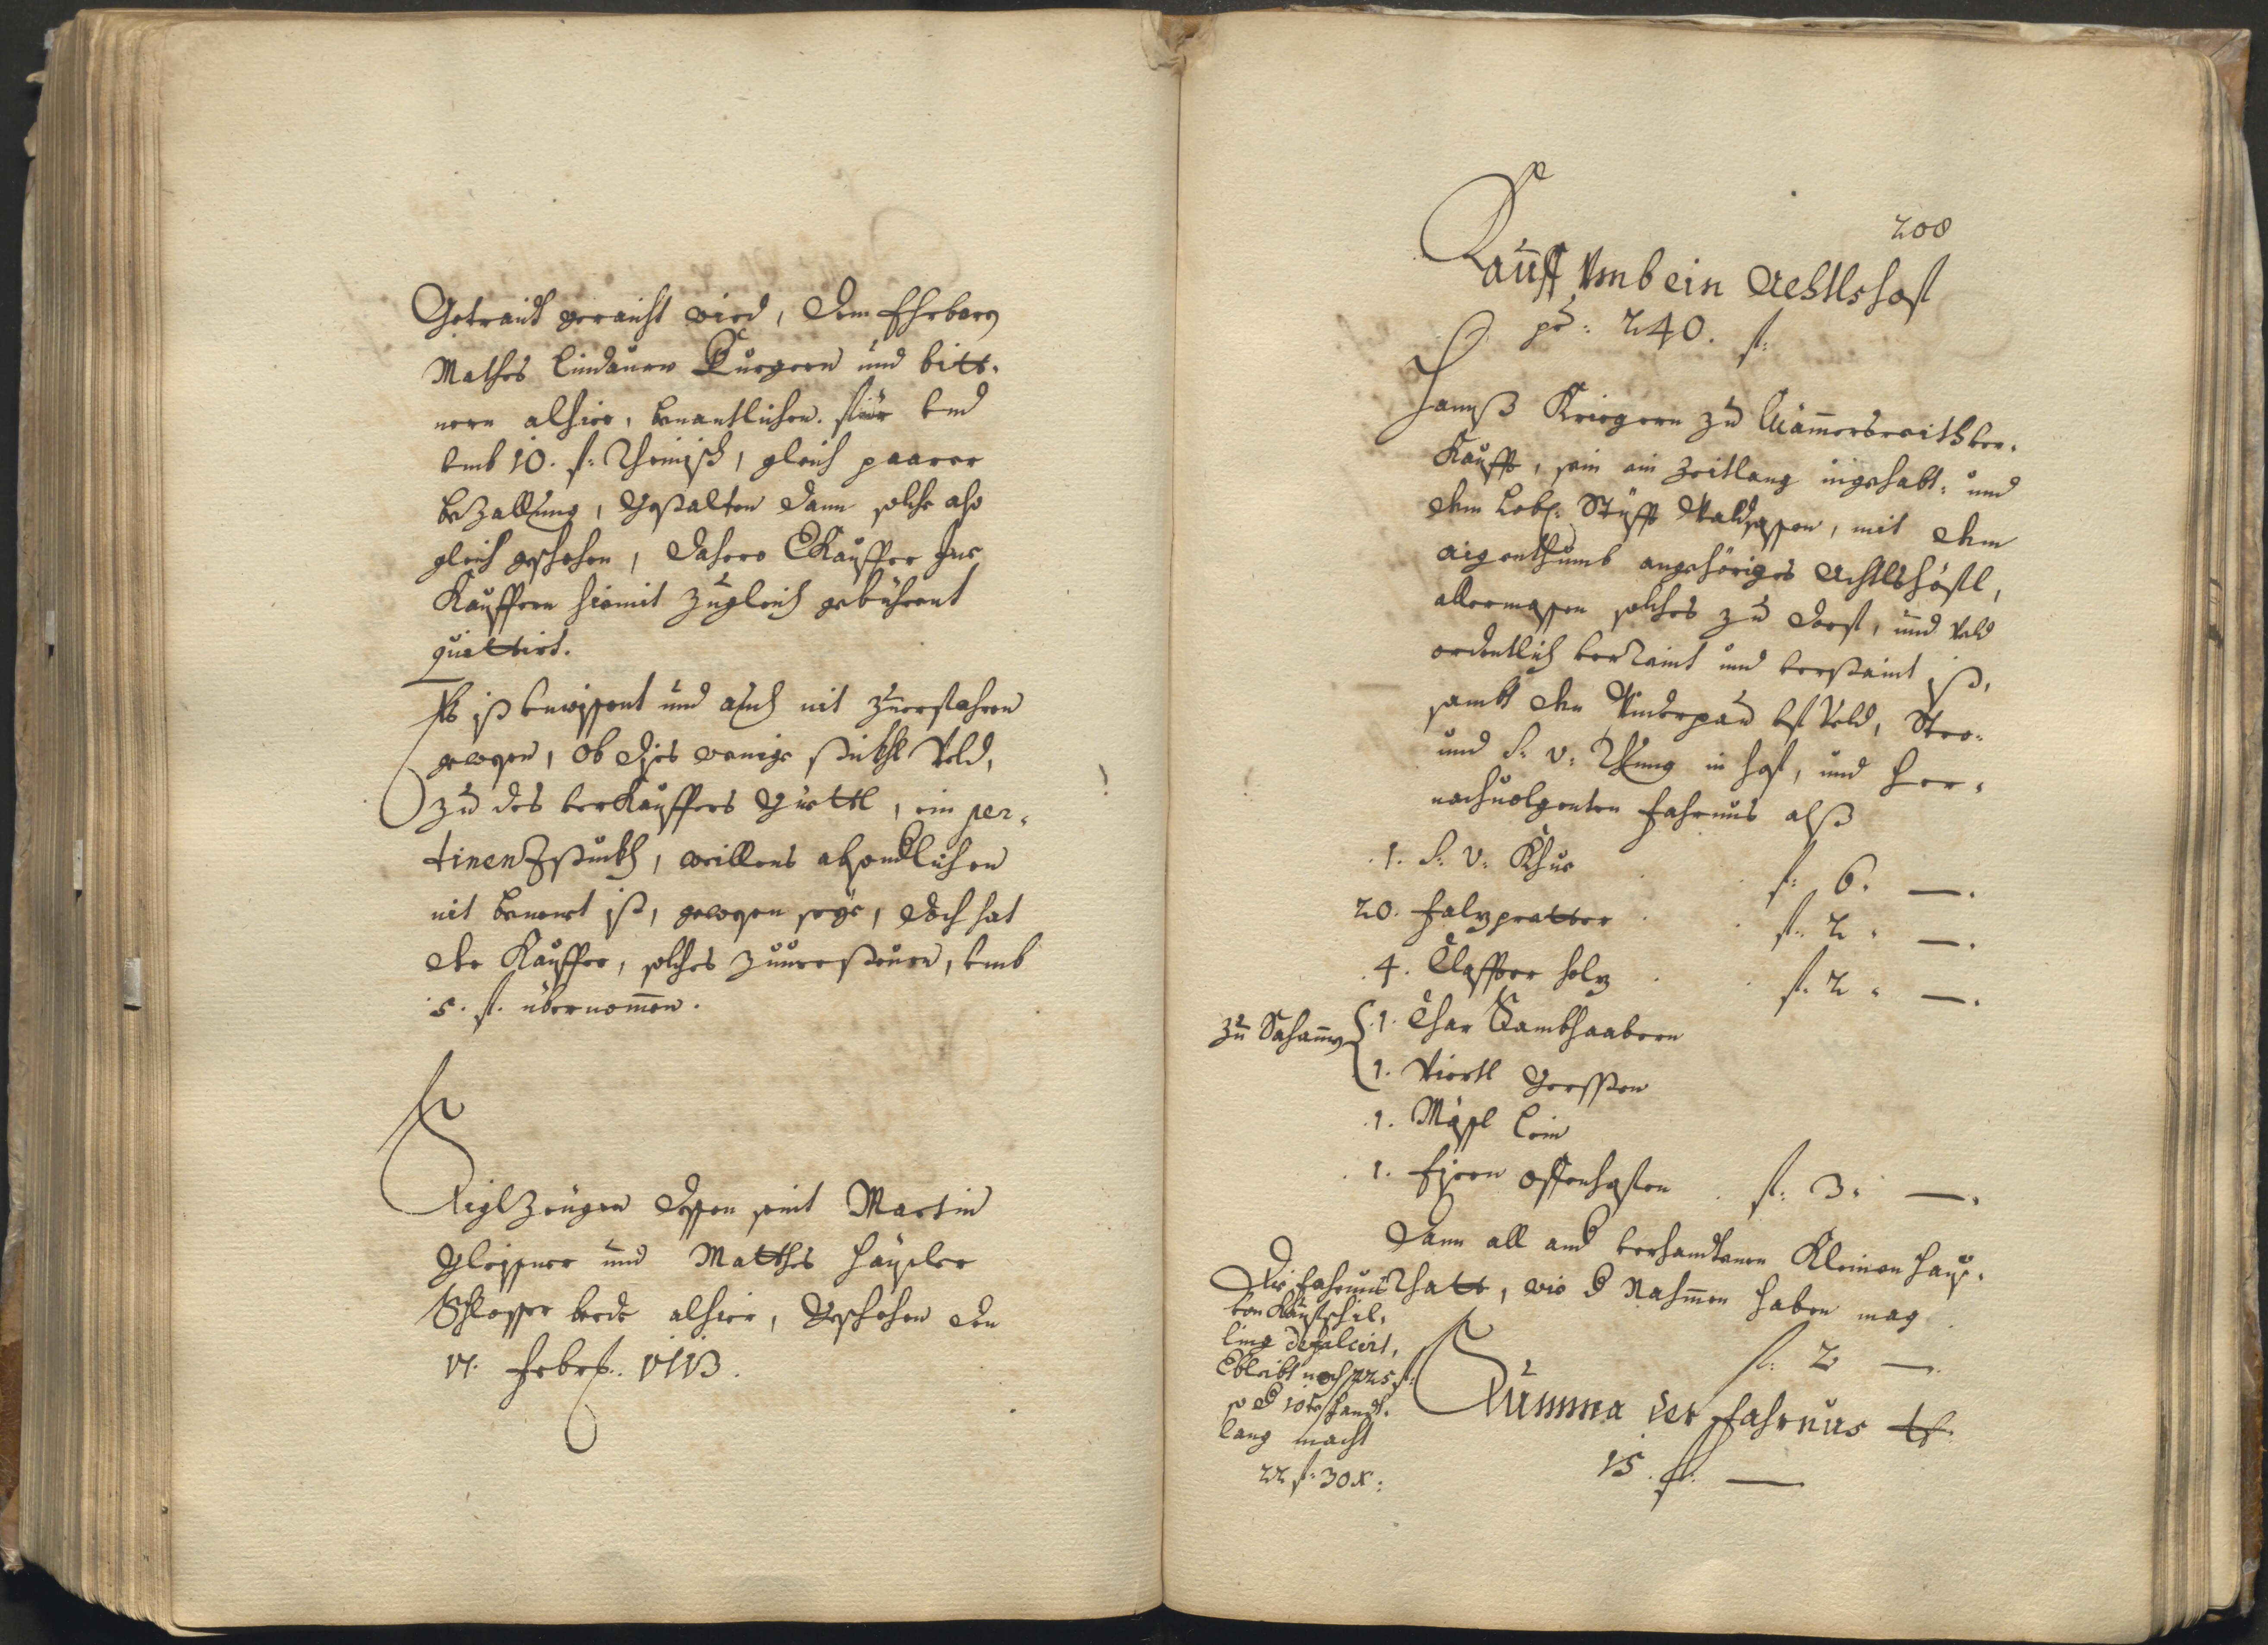 Getraidt geraicht wird, dem Ehrbarn
Mathes Lindauer Burgern und bitt-
nern alhier, benantlichen für und
umb 10. fl: Rheinisch, gleich paarer
bezallung, Gestalten dann solche also
gleich geschehen, dahero Verkauffer Ihne
Kauffern hiemit zugleich gebührent
quittirt.
Es ist unwissent und auch nit zuerfahren
gewesen, ob dises wenige stückhl Veld,
zu des verkauffers Güettl, ein per-
tinenzstuckh, weillens absonderlichen
nit benent ist, gewesen seye, doch hat
der Kauffer, solches zuuersteuern, umb
5. fl. übernommen.
Siglzeugen dessen seint Martin
Gleissner und Matthes Häusler
Schlosser beede alhier, Geschehen den
17. Febr: 1713.
208
Kauff umb ein Achtlshoff
pr: 240. fl:
Hannß Kriegern zu Wämersreith ver-
Kaufft, sein ein Zeitlang ingehabt: und
dem Löbl: Stüfft Waldsassen, mit dem
aigenthumb angehöriges Achtlshöfl,
allermassen solches zu dorf, und Veld
ordentlich verraint und verstaint ist,
sambt den Underpau des Veld, Stro-
und S: V: Thung in Hoff, und her-
nachuolgenten Fahrnus alß
1. S: V: Khue fl: 6. —.
20. Falzpretter fl: 2. —.
4. Claffter holz fl: 2. —.
Zu Sahamg
1. Char Sambhaabern
1. Viertl Gerssten
1. Mässl Lein
1. Eisern offenhafen fl: 3. —.
Dann all and verhandtenen Kleinen Hauß-
Rhatt, wie d Nahmen haben mag
fl: 2 —.
Die Fahrnus
von Kaufschil-
ling defalcirt,
Verbleibt noch 225 fl:
so d 10te Handt-
lang macht
22 fl: 30 x:
Summa der Fahrnus
15. fl. —